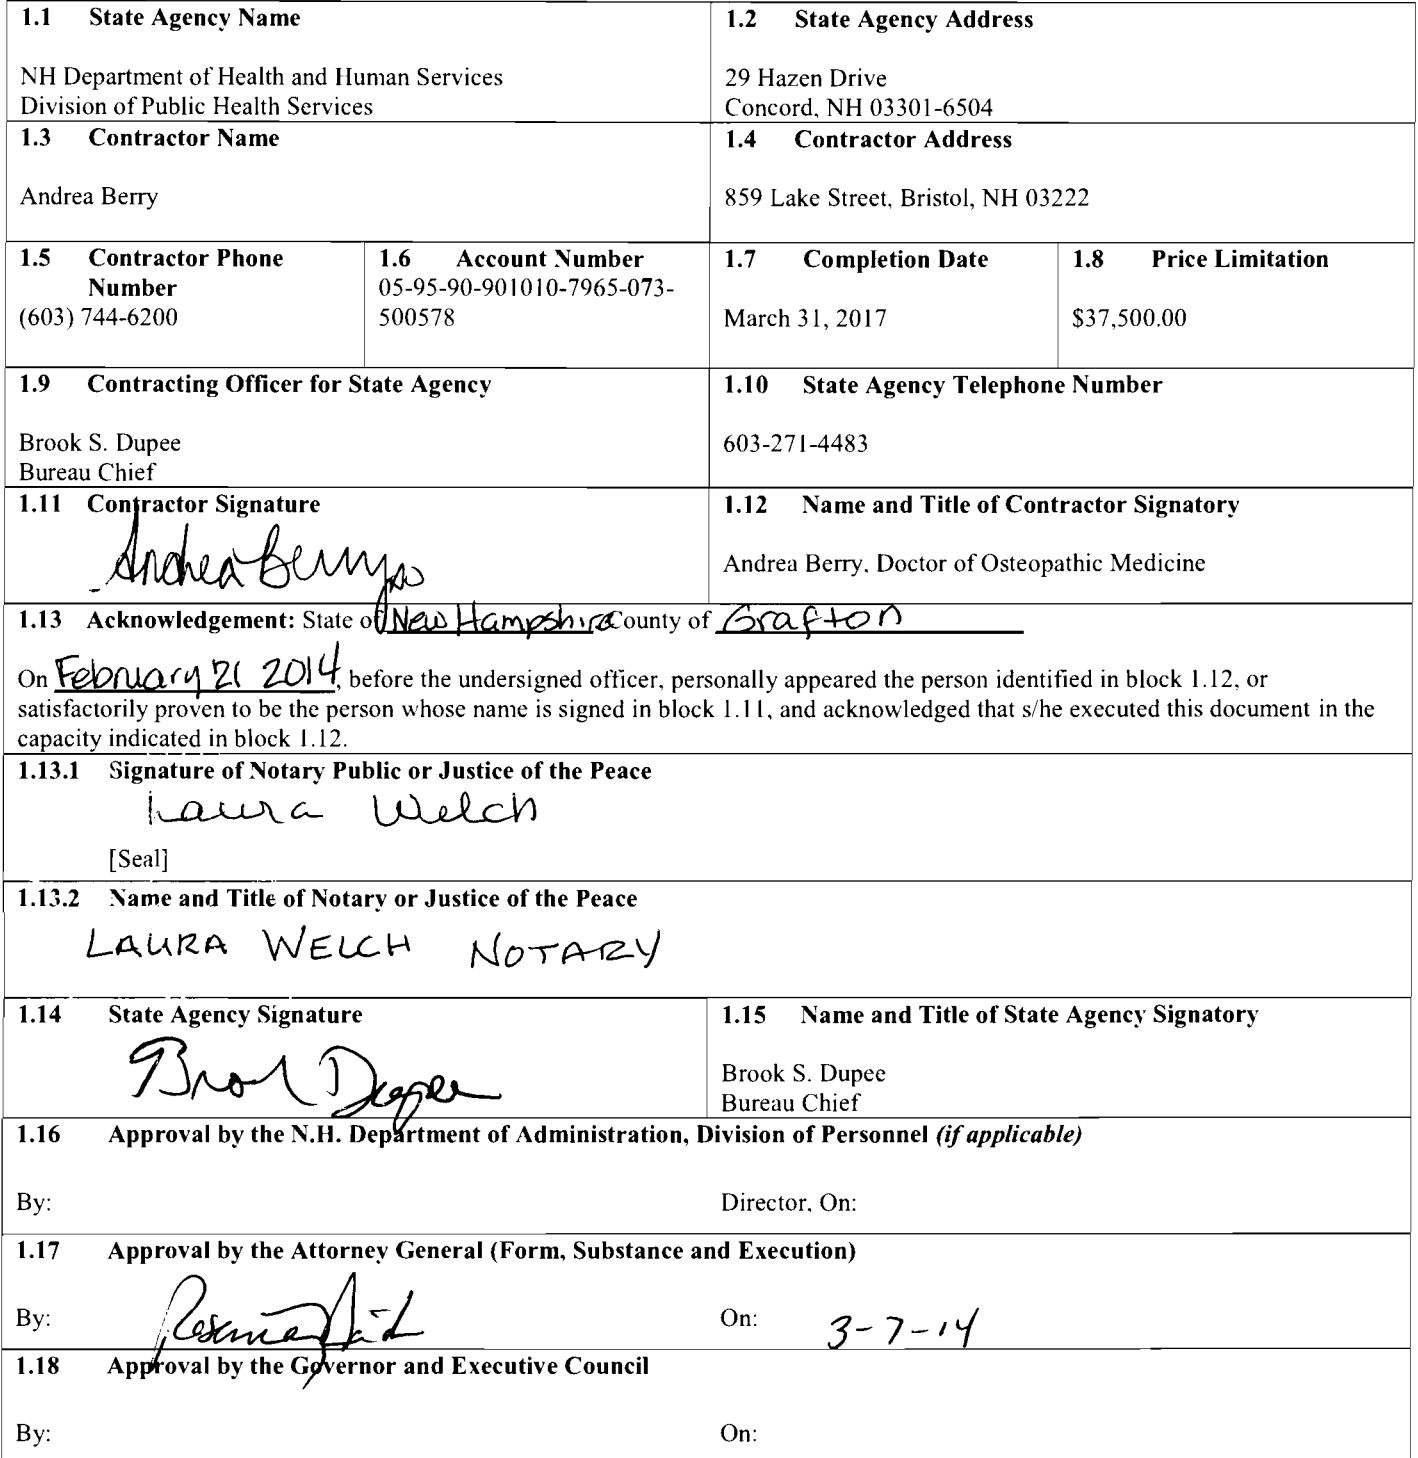 1.1 State Agency Name
NH Department of Health and Human Services
Division of Public Health Services
1.2 State Agency Address
29 Hazen Drive
Concord, NH 03301-6504
1.3 Contractor Name
Andrea Berry
1.4 Contractor Address
859 Lake Street, Bristol, NH 03222
1.5 Contractor Phone
Number
(603) 744-6200
1.6 Account Number
05-95-90-901010-7965-073-
500578
1.7 Completion Date
March 31, 2017
1.8 Price Limitation
$37,500.00
1.9 Contracting Officer for State Agency
Brook S. Dupee
Bureau Chief
1.10 State Agency Telephone Number
603-271-4483
1.11 Contractor Signature
Andrea Berry DO
1.12 Name and Title of Contractor Signatory
Andrea Berry, Doctor of Osteopathic Medicine
1.13 Acknowledgement: State of New Hampshire County of Grafton
On February 21 2014, before the undersigned officer, personally appeared the person identified in block 1.12, or
satisfactorily proven to be the person whose name is signed in block 1.11, and acknowledged that s/he executed this document in the
capacity indicated in block 1.12.
1.13.1 Signature of Notary Public or Justice of the Peace
Laura Welch
[Seal]
1.13.2 Name and Title of Notary or Justice of the Peace
LAURA WELCH NOTARY
1.14 State Agency Signature
Brook Dupee
1.15 Name and Title of State Agency Signatory
Brook S. Dupee
Bureau Chief
1.16 Approval by the N.H. Department of Administration, Division of Personnel (if applicable)
By: Director, On:
1.17 Approval by the Attorney General (Form, Substance and Execution)
By: On: 3-7-14
1.18 Approval by the Governor and Executive Council
By: On: